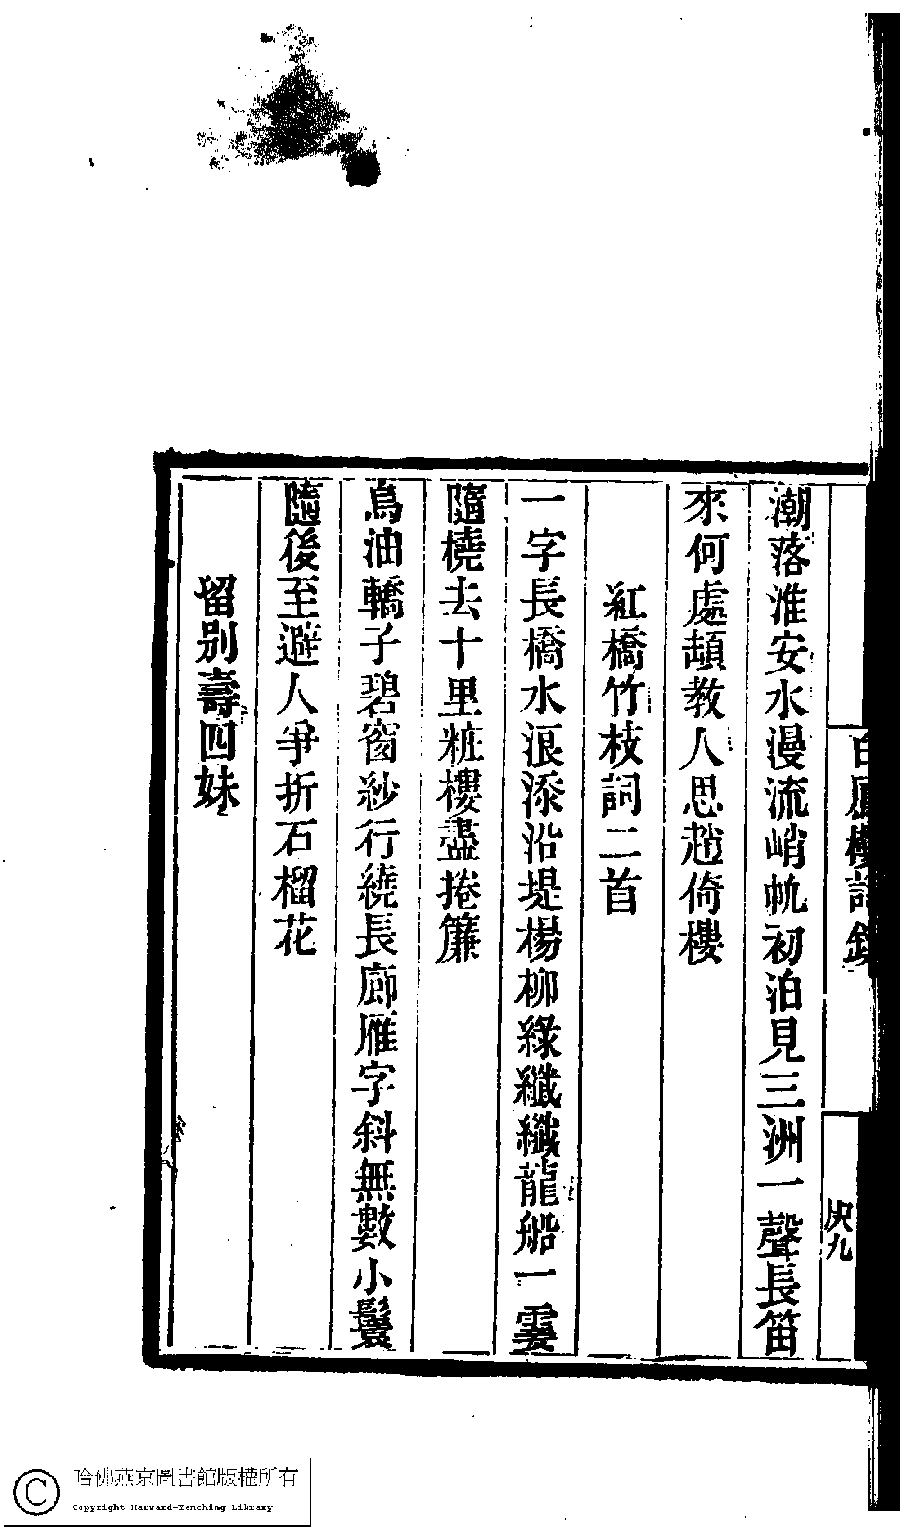 潮落淮安水漫流峭帆初泊見三洲一聲長笛
來何處頡教人思趙倚樓
紅橋竹枝詞二首
一字長橋水浪添沿堤楊柳綠纖纖龍船一霎
隨橈去十里粧樓盡捲簾
烏油轎子碧窗紗行繞長廊雁字斜無數小鬟
隨後至避人爭折石榴花
留別壽四妹
哈佛燕京圖書館版權所有
Copyright Harvard-Yenching Library